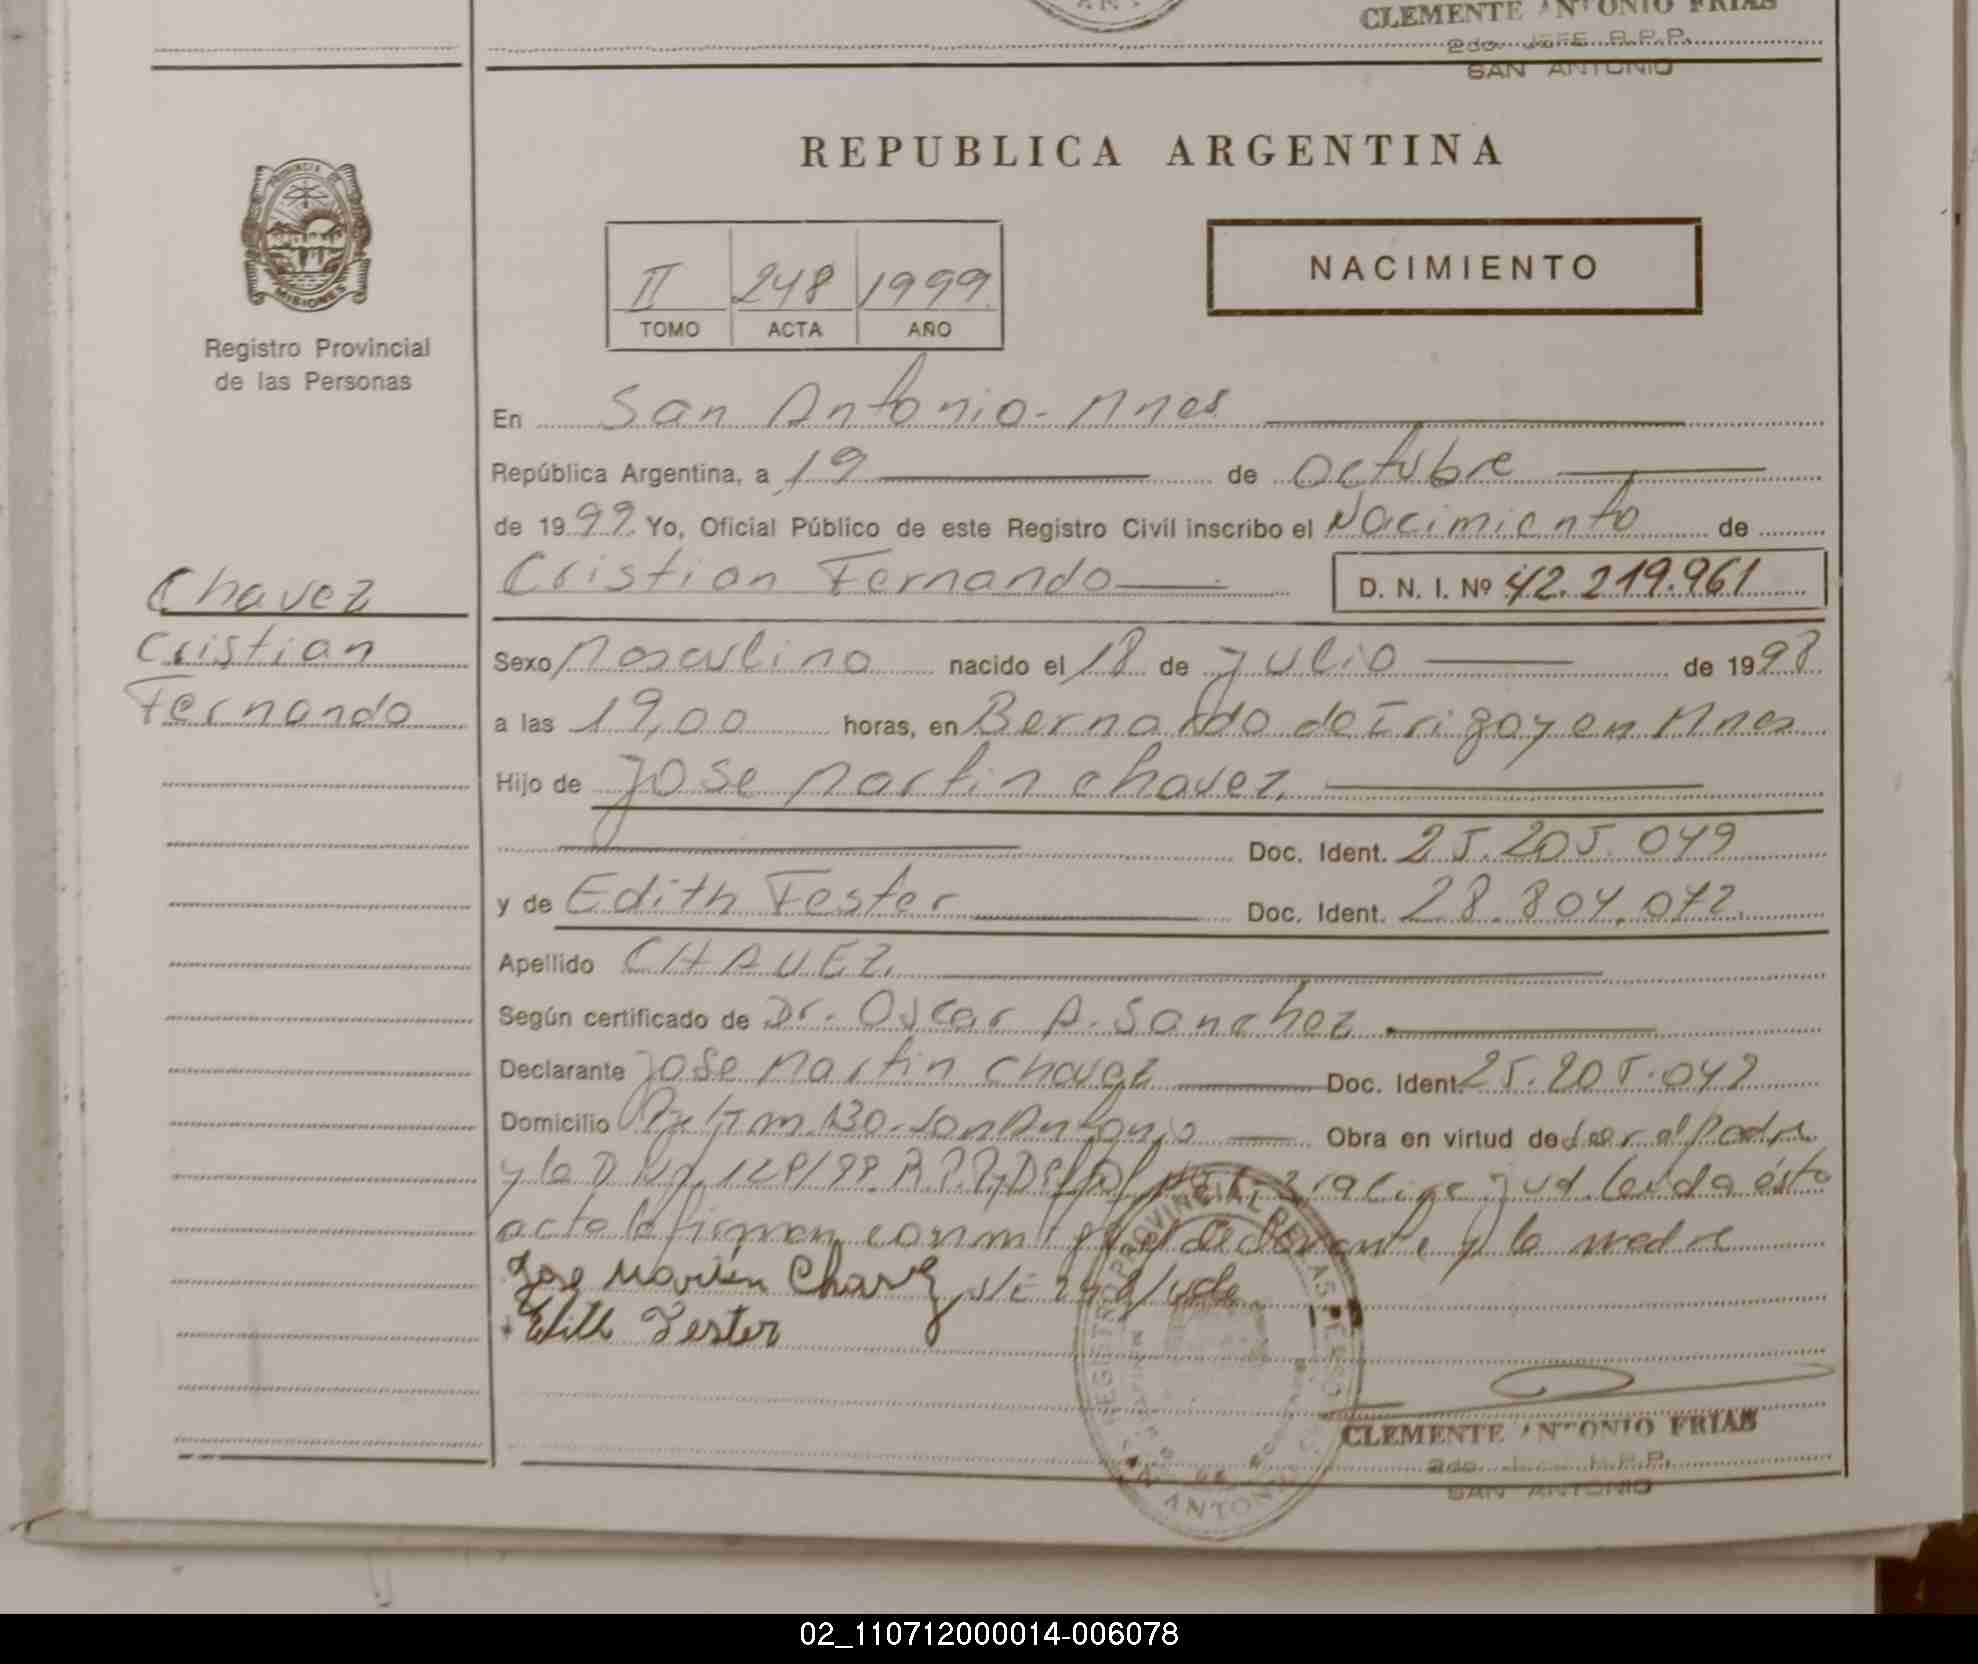 CLEMENTE ANTONIO FRIAS
2do. JEFE R.P.P.
SAN ANTONIO
REPUBLICA ARGENTINA
PROVINCIA DE
MISIONES
Registro Provincial
de las Personas
II 248 1999
TOMO ACTA AÑO
NACIMIENTO
En San Antonio - Mnes
República Argentina, a 19 de Octubre
de 1999. Yo, Oficial Público de este Registro Civil inscribo el Nacimiento de
Chavez
Cristian Fernando D. N. I. Nº 42.219.961
Cristian
Sexo Masculino nacido el 18 de Julio de 1998
Fernando
a las 19,00 horas, en Bernardo de Irigoyen Mnes
Hijo de Jose Martin Chavez
Doc. Ident. 25.205.049
y de Edith Fester Doc. Ident. 28.804.072
Apellido CHAVEZ
Según certificado de Dr. Oscar A. Sanchez
Declarante Jose Martin Chavez Doc. Ident. 25.205.049
Domicilio San Antonio Obra en virtud de ser el Padre
y la Leida ésta
acta la firman conmigo el declarante y la madre
Jose Martin Chavez
Edith Fester
REGISTRO PROVINCIAL DE LAS PERSONAS
ANTONIO
CLEMENTE ANTONIO FRIAS
2do. R.P.P.
SAN ANTONIO
02_110712000014-006078